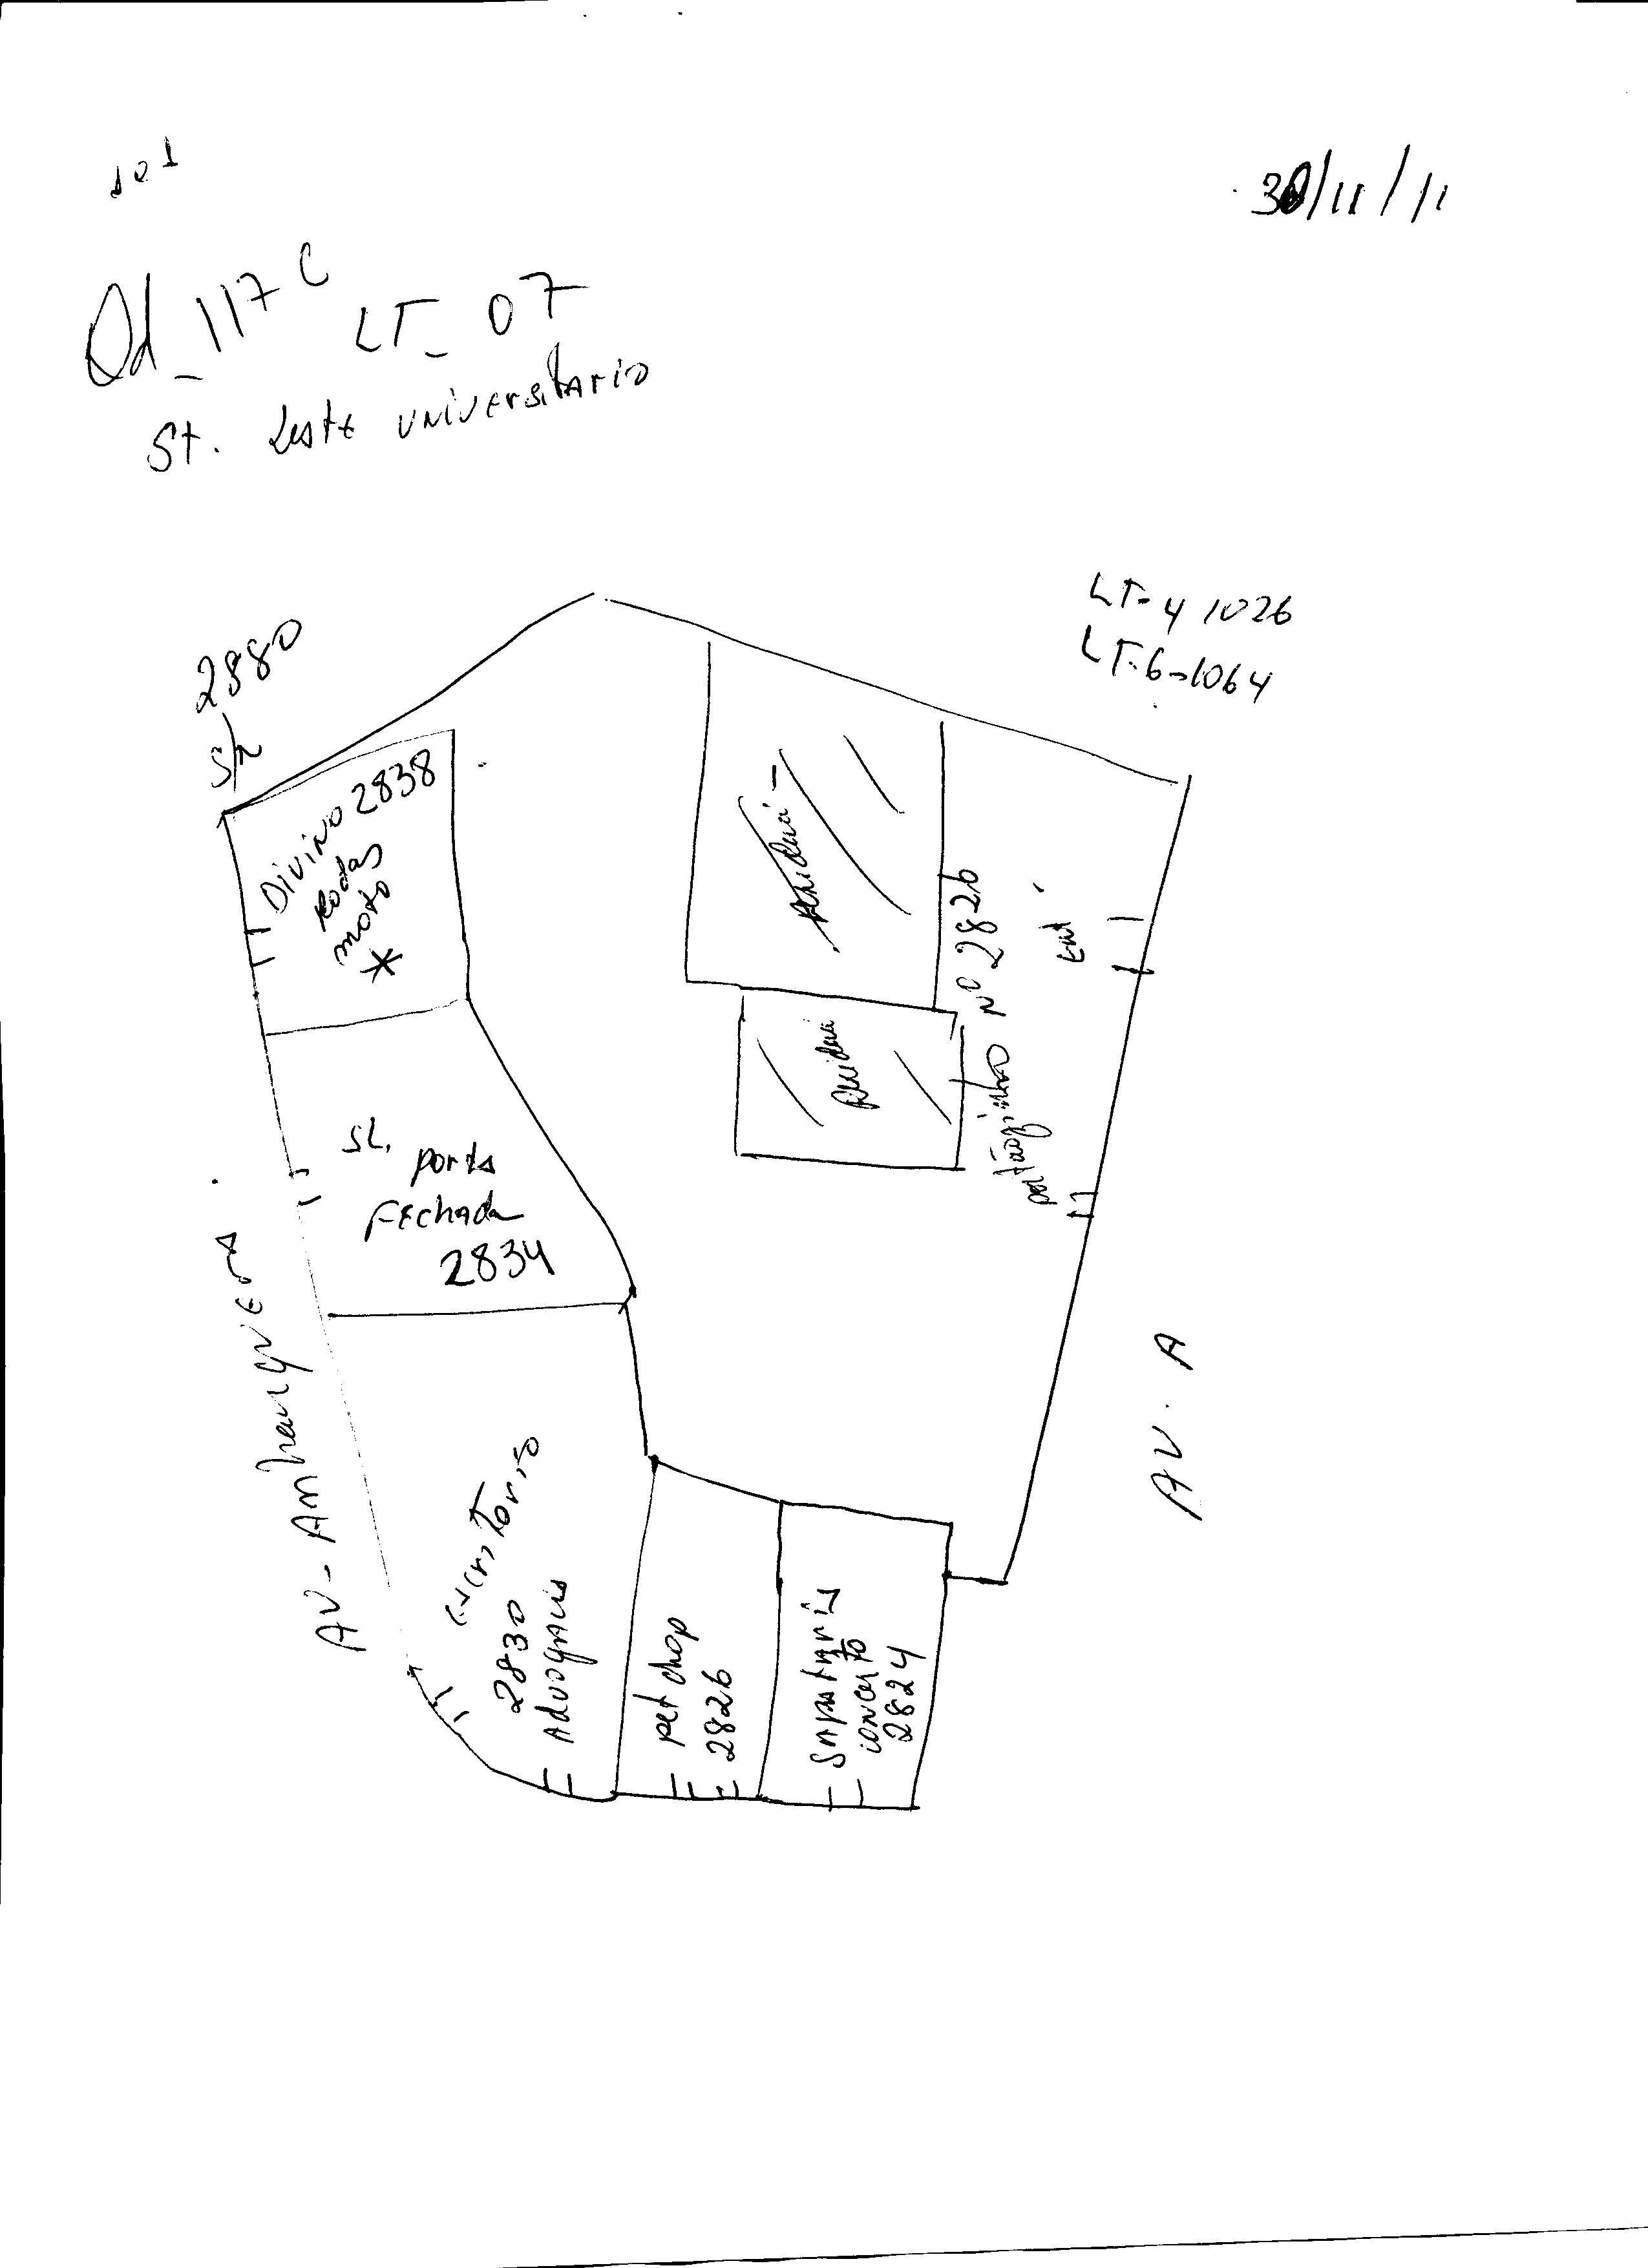 101
30/11/11
Qd_117 C LT_07
St. Leste universitario
LT-4 1026
LT-6-1064
2880
S/n
Divino 2838
Rodas
moto
*
SL. porta
Fechada
2834
2830
Advogacia
pet chop
2826
concerto
2824
portãozinho Nº 2826
AV- Anhanguera
AV. A